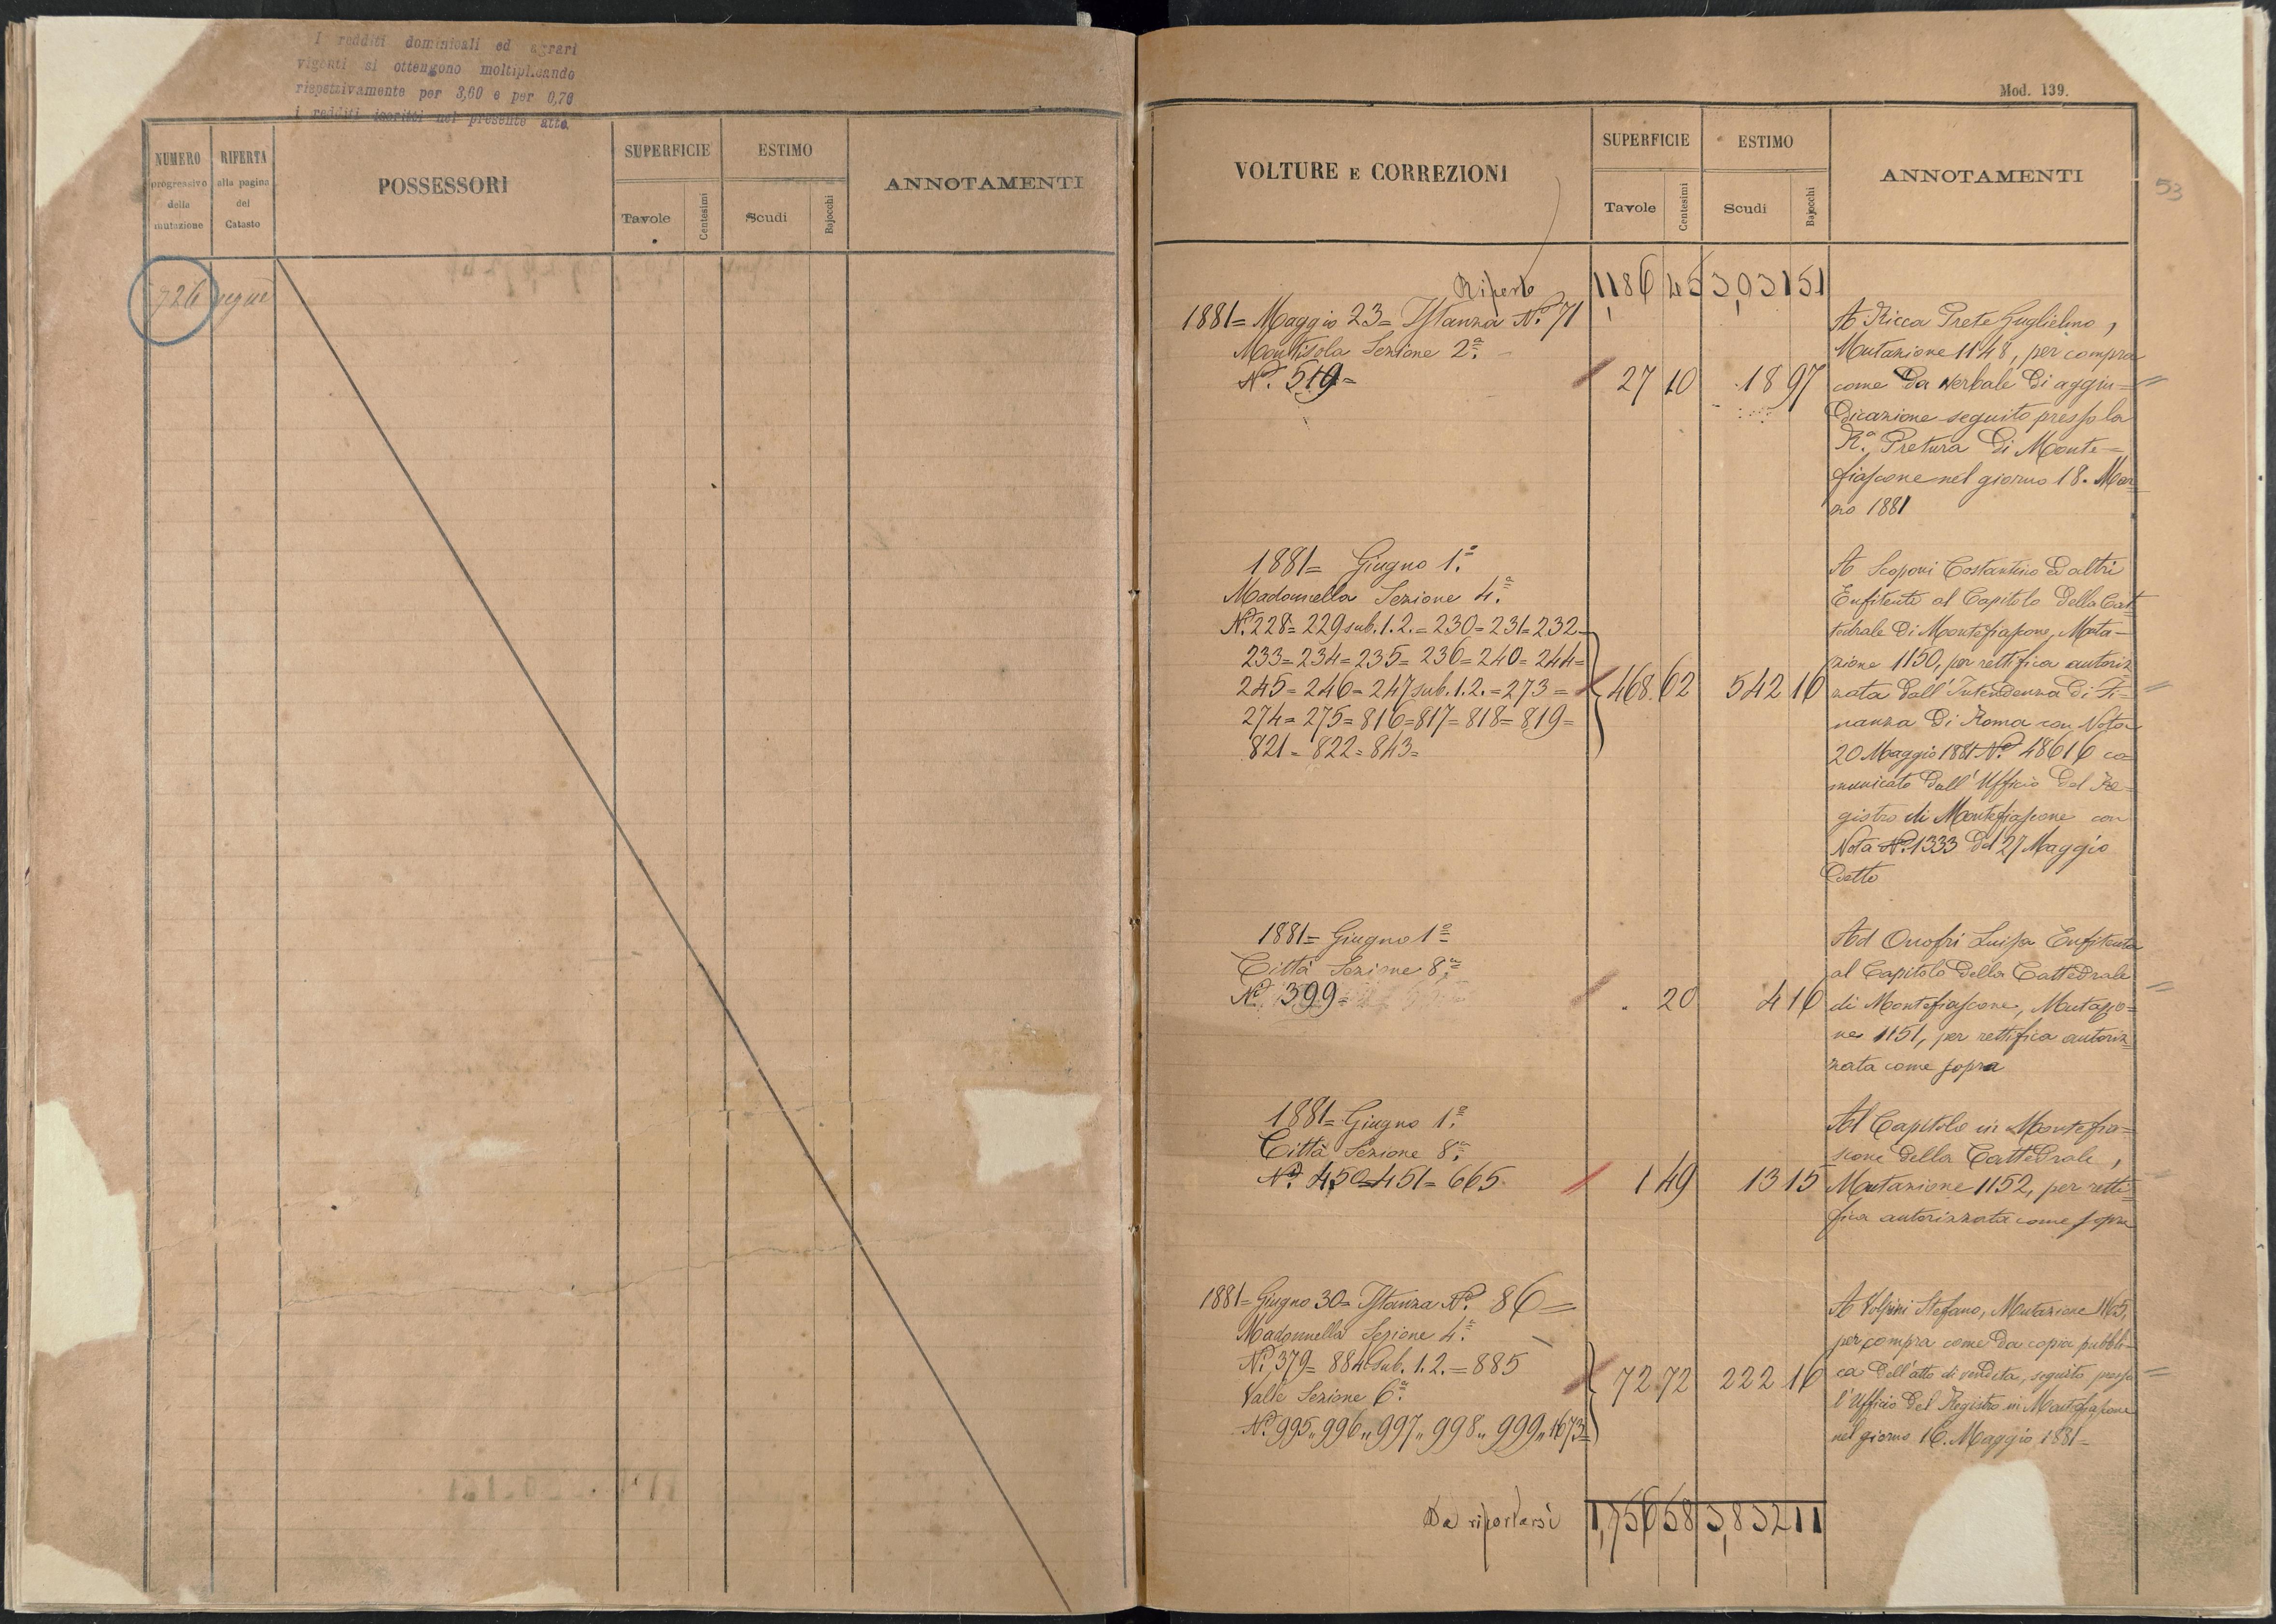 I redditi dominicali ed agrari
vigenti si ottengono moltiplicando
rispettivamente per 3,60 e per 0,70
i redditi iscritti nel presente atto.
NUMERO
progressivo
della
mutazione
RIFERTA
alla pagina
del
Catasto
POSSESSORI
SUPERFICIE
Tavole
Centesimi
ESTIMO
Scudi
Bajocchi
ANNOTAMENTI
726 segue
Mod. 139.
53
VOLTURE E CORREZIONI
SUPERFICIE
Tavole
Centesimi
ESTIMO
Scudi
Bajocchi
ANNOTAMENTI
Riporto 1,186 45 3,031 51
1881= Maggio 23= Istanza N.º 71
Montisola Sezione 2ª
Nº. 519= 27 10 18 97
A Ricca Prete Guglielmo,
Mutazione 1148, per compra
come da verbale di aggiu=
dicazione seguito presso la
Rª. Pretura di Monte=
fiascone nel giorno 18. Mar=
zo 1881
1881= Giugno 1º.
Madonnella Sezione 4ª.
Nº. 228= 229 sub. 1. 2.= 230= 231= 232=
233= 234= 235= 236= 240= 244=
245= 246= 247 sub. 1. 2.= 273=
274= 275= 816= 817= 818= 819=
821= 822= 843=
468 62 542 16
A Scoponi Costantino ed altri
Enfiteuti al Capitolo della Cat=
tedrale di Montefiascone, Muta=
zione 1150, per rettifica autoriz
zata dall'Intendenza di Fi=
nanza di Roma con Nota
20 Maggio 1881 Nº. 48616 co
municato dall'Ufficio del Re=
gistro di Montefiascone con
Nota Nº. 1333 del 27 Maggio
detto
1881= Giugno 1º
Città Sezione 8ª.
Nº. 399= 20 4 16
Ad Onofri Luisa Enfiteuta
al Capitolo della Cattedrale
di Montefiascone, Mutazio=
ne 1151, per rettifica autoriz=
zata come sopra
1881= Giugno 1º.
Città Sezione 8ª.
Nº. 450= 451= 665 1 49 13 15
Al Capitolo in Montefia=
scone della Cattedrale,
Mutazione 1152, per retti=
fica autorizzata come sopra
1881= Giugno 30= Istanza Nº. 86=
Madonnella Sezione 4ª.
Nº. 379= 884 sub. 1. 2.= 885
Valle Sezione 6ª.
Nº. 995„ 996„ 997„ 998„ 999„ 1673=
72 72 222 16
A Volpini Stefano, Mutazione 1165,
per compra come da copia pubbli=
ca dell'atto di vendita, seguito presso
l'Ufficio del Registro in Montefiascone
nel giorno 16. Maggio 1881=
Da riportarsi 1,756 58 3,832 11